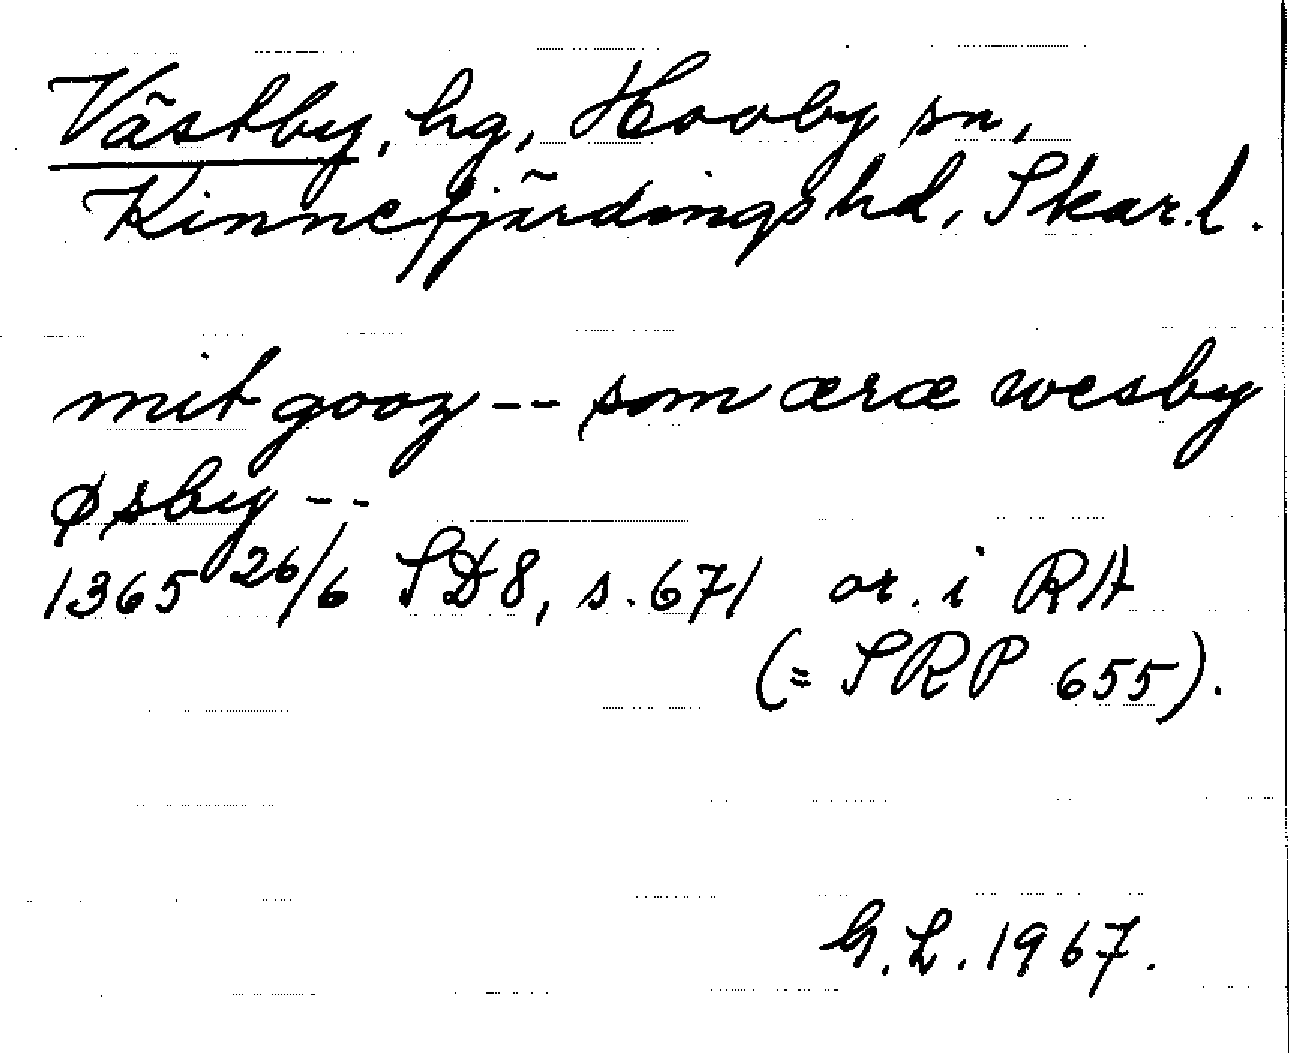 Västby, hg, Hovby sn,
Kinnefjärdings hd, Skar.l.
mit gooz -- som æræ wesby
øsby --
1365 26/6 SD8, s. 671 or. i RA
(= SRP 655).
G.L. 1967.